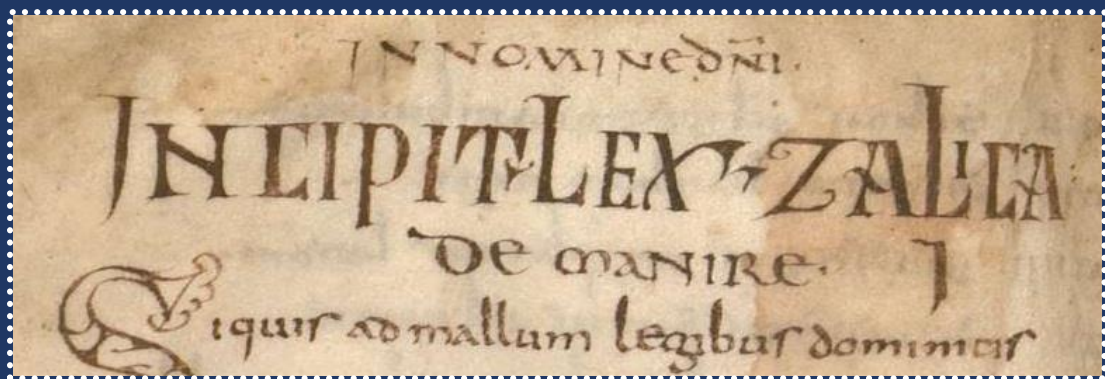 IN NOMINE DNI.
INCIPIT LEX ZALICA
DE MANIRE. I
Siquis ad mallum legibus dominicis